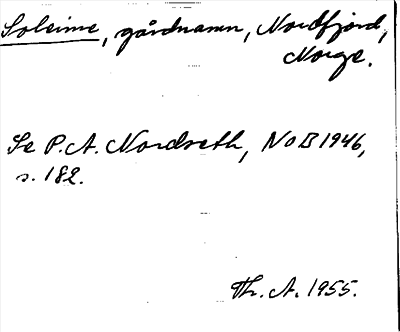 Soleime, gårdnamn, Nordfjord,
Norge.
Se P. A. Nordseth, NoB 1946,
s. 182.
Th. A. 1955.